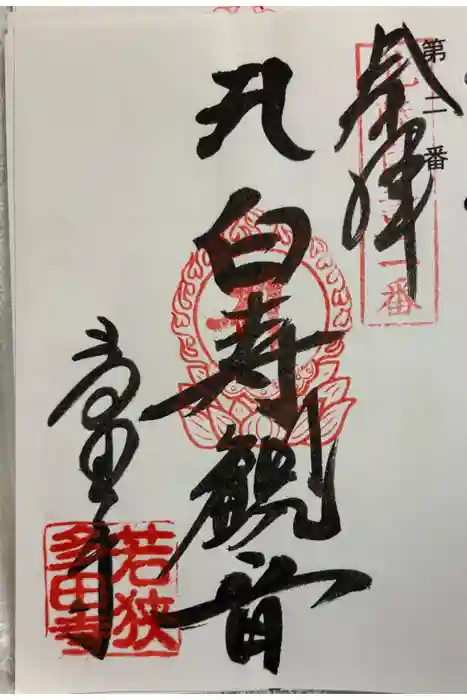 第二番
奉拝
白寿観音
多田寺
若狭
多田寺